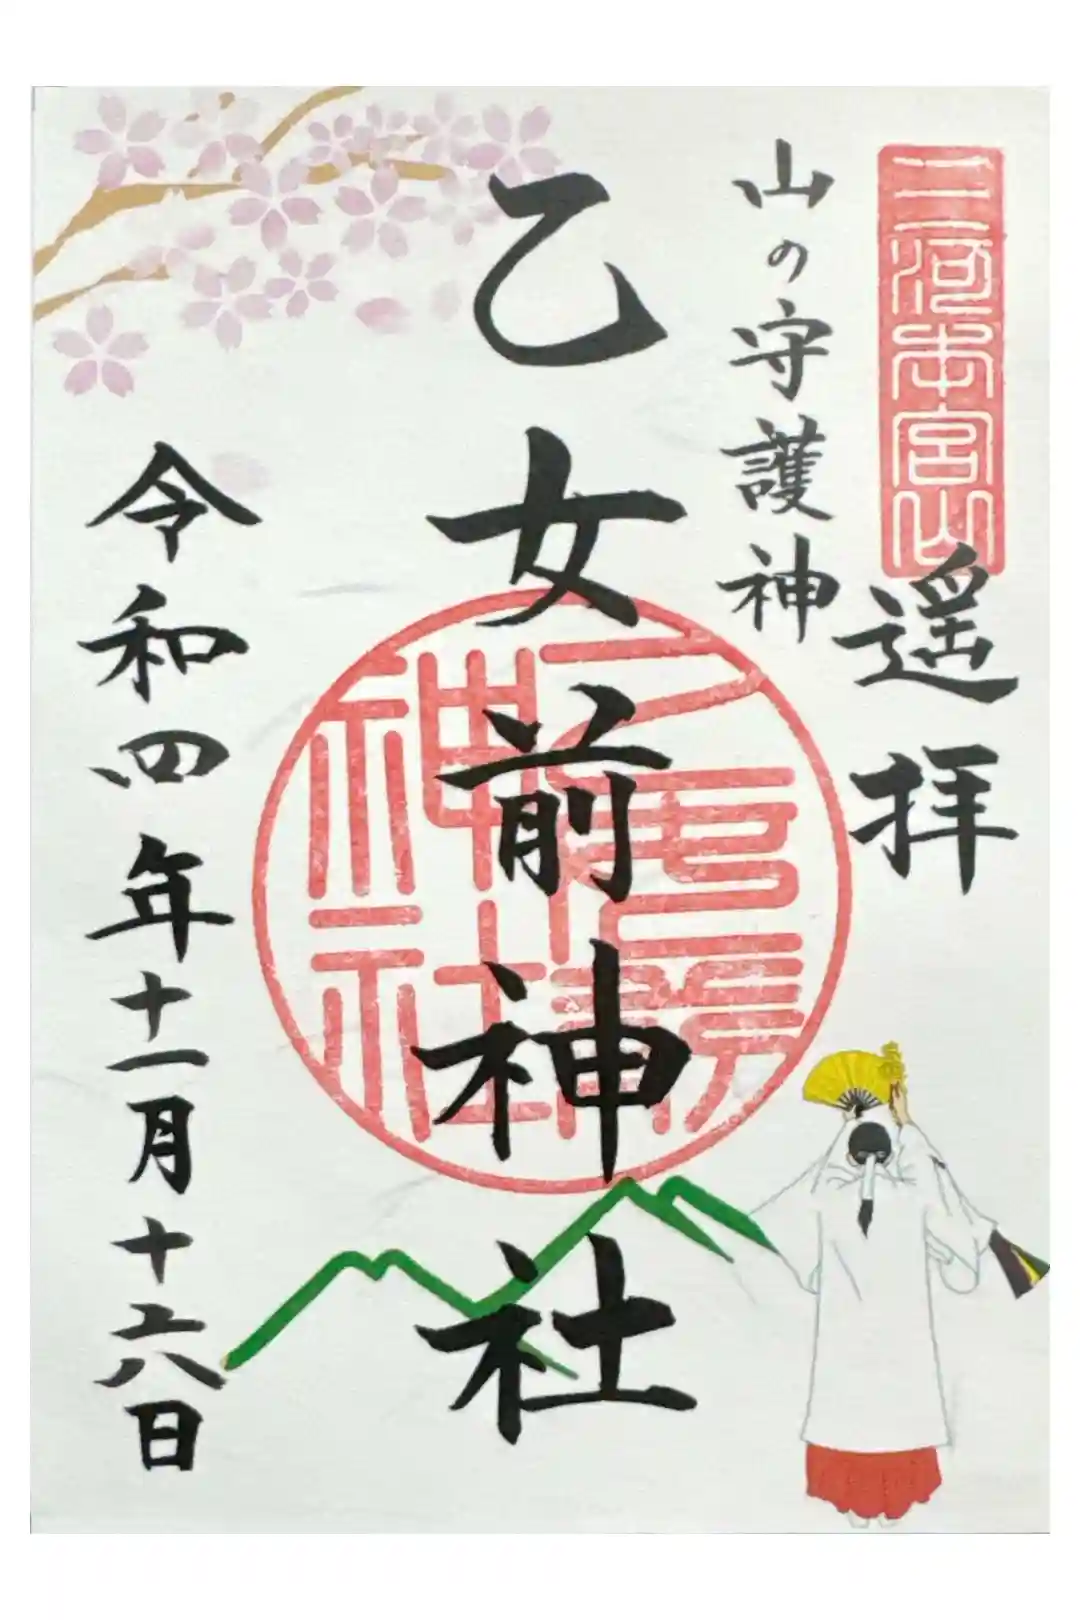 三河本宮山
遥拝
山の守護神
乙女前神社
乙女前神社
令和四年十一月十六日